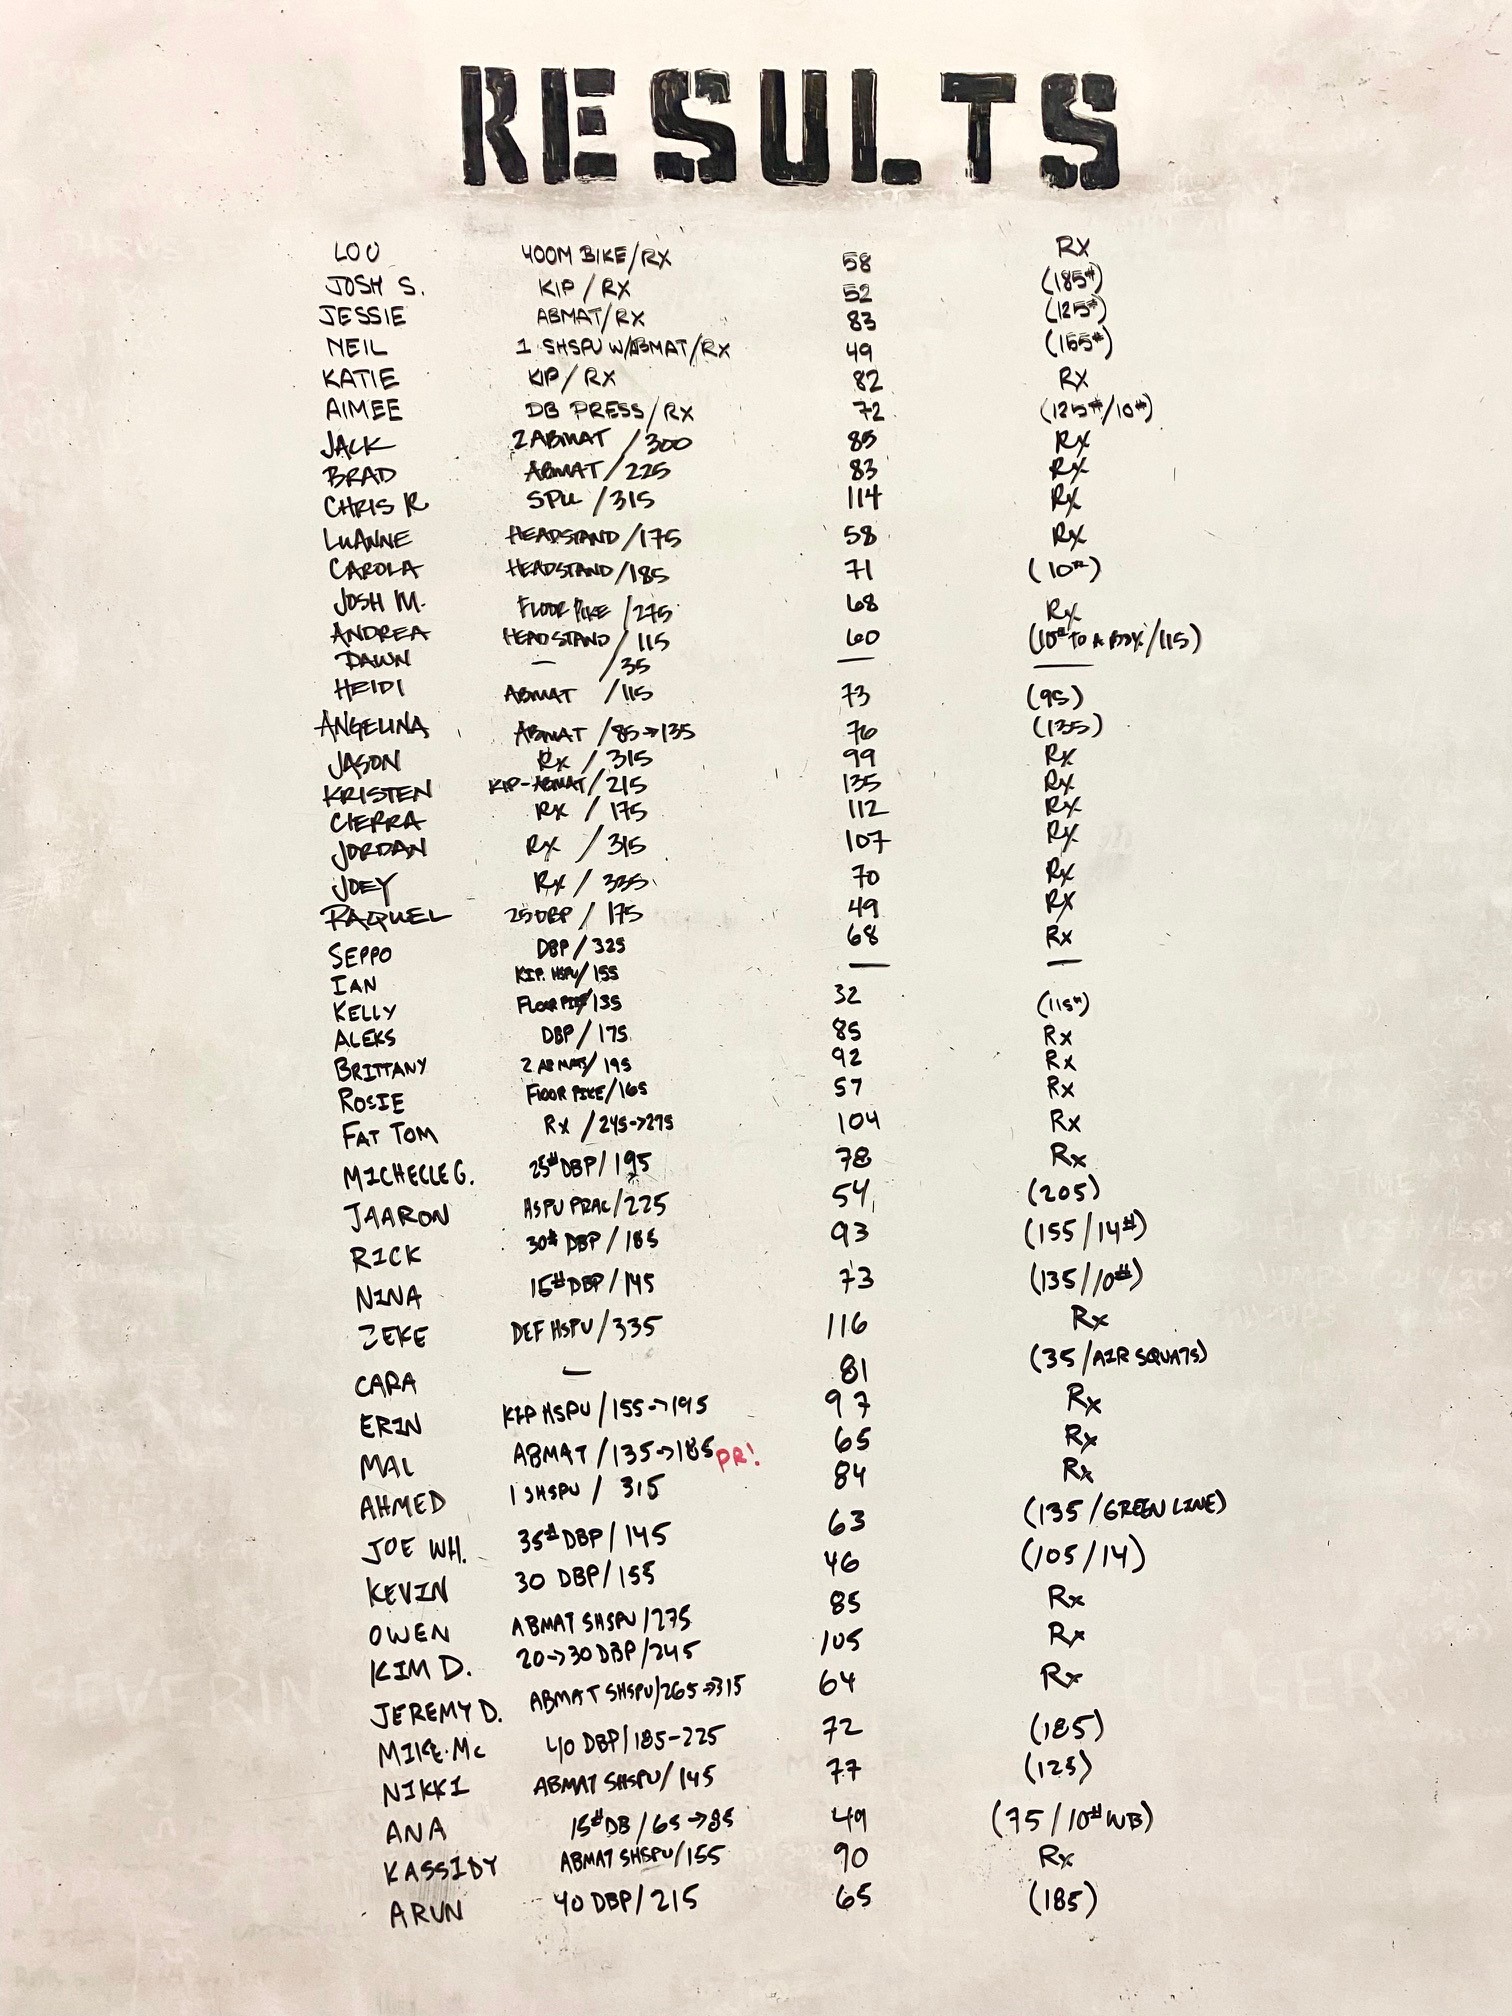 RESULTS
LOU 400M BIKE/RX 58 RX
JOSH S. KIP / RX 52 (185#)
JESSIE ABMAT/RX 83 (125#)
NEIL 1 SHSPU W/ABMAT/RX 49 (155#)
KATIE KIP/RX 82 RX
AIMEE DB PRESS/RX 72 (125#/10#)
JACK 2 ABMAT /300 85 Rx
BRAD ABMAT/225 83 Rx
CHRIS R /315 114 Rx
LUANNE HEADSTAND/175 58 Rx
CAROLA HEADSTAND/185 71 (10#)
JOSH M. FLOOR PIKE /275 68 Rx
ANDREA HEADSTAND/115 60 (10# TO A BOX/115)
DAWN — /35 — —
HEIDI ABMAT /115 73 (95)
ANGELINA ABMAT /85→135 76 (135)
JASON Rx / 315 99 Rx
KRISTEN KIP-ABMAT/215 135 Rx
CIERRA Rx / 175 112 Rx
JORDAN Rx / 315 107 Rx
JOEY Rx / 335 70 Rx
RAQUEL 25 DBP / 175 49 Rx
SEPPO DBP/325 68 Rx
IAN KIP. HSPU/155 — —
KELLY FLOOR PIKE/135 32 (115#)
ALEKS DBP/175 85 Rx
BRITTANY 2 ABMATS/195 92 Rx
ROSIE FLOOR PIKE/165 57 Rx
FAT TOM Rx /245->275 104 Rx
MICHELLE G. 25# DBP/195 78 Rx
JAARON HSPU PRAC/225 54 (205)
RICK 30# DBP / 185 93 (155/14#)
NINA 15# DBP/145 73 (135/10#)
ZEKE DEF HSPU/335 116 Rx
CARA — 81 (35/AIR SQUATS)
ERIN KIP HSPU/155->195 97 Rx
MAL ABMAT/135->185 PR! 65 Rx
AHMED 1 SHSPU / 315 84 Rx
JOE WH. 35# DBP/145 63 (135/GREEN LINE)
KEVIN 30 DBP/155 46 (105/14)
OWEN ABMAT SHSPU/275 85 Rx
KIM D. 20->30 DBP/245 105 Rx
JEREMY D. ABMAT SHSPU/265->315 64 Rx
MIKE Mc 40 DBP/185-225 72 (185)
NIKKI ABMAT SHSPU/145 77 (125)
ANA 15# DB/65->85 49 (75/10# WB)
KASSIDY ABMAT SHSPU/155 90 Rx
ARUN 40 DBP/215 65 (185)